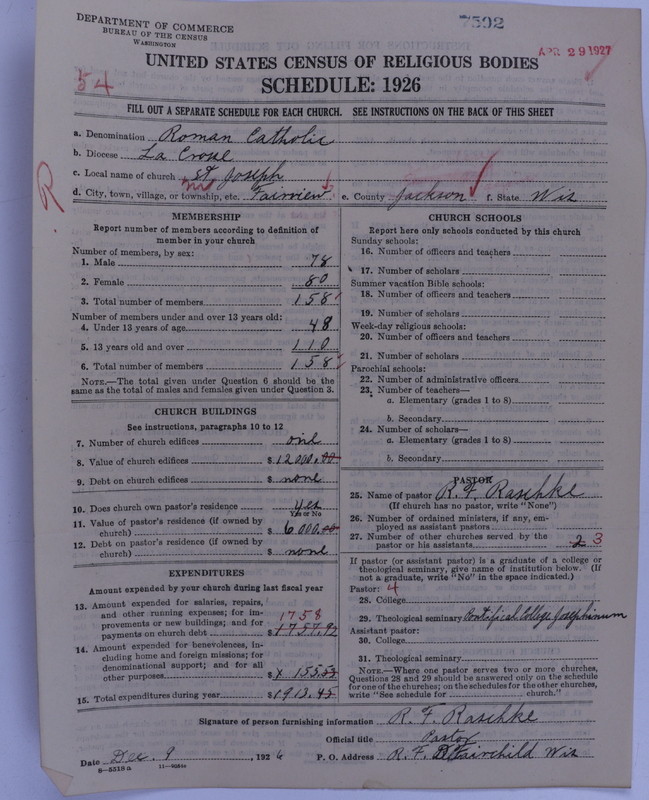 DEPARTMENT OF COMMERCE
BUREAU OF THE CENSUS
WASHINGTON
7592
APR 29 1927
UNITED STATES CENSUS OF RELIGIOUS BODIES
SCHEDULE: 1926
54
FILL OUT A SEPARATE SCHEDULE FOR EACH CHURCH. SEE INSTRUCTIONS ON THE BACK OF THIS SHEET
a. Denomination Roman Catholic
b. Diocese La Crosse
c. Local name of church St. Joseph
R
d. City, town, village, or township, etc. Fairview e. County Jackson f. State Wis
MEMBERSHIP
Report number of members according to definition of
member in your church
Number of members, by sex:
1. Male 78
2. Female 80
3. Total number of members 158
Number of members under and over 13 years old:
4. Under 13 years of age 48
5. 13 years old and over 110
6. Total number of members 158
NOTE.—The total given under Question 6 should be
same as the total of males and females given under Question 3.
CHURCH BUILDINGS
See instructions, paragraphs 10 to 12
7. Number of church edifices one
8. Value of church edifices $12000.00
9. Debt on church edifices $ none
10. Does church own pastor's residence yes
Yes or No
11. Value of pastor's residence (if owned by
church) $6000.00
12. Debt on pastor's residence (if owned by
church) $ none
EXPENDITURES
Amount expended by your church during last fiscal year
13. Amount expended for salaries, repairs,
and other running expenses; for im-
provements or new buildings; and for
payments on church debt 1758
$1757.92
14. Amount expended for benevolences, in-
cluding home and foreign missions; for
denominational support; and for all
other purposes $155.53
15. Total expenditures during year $1913.45
CHURCH SCHOOLS
Report here only schools conducted by this church
Sunday schools:
16. Number of officers and teachers
17. Number of scholars
Summer vacation Bible schools:
18. Number of officers and teachers
19. Number of scholars
Week-day religious schools:
20. Number of officers and teachers
21. Number of scholars
Parochial schools:
22. Number of administrative officers
23. Number of teachers—
a. Elementary (grades 1 to 8)
b. Secondary
24. Number of scholars—
a. Elementary (grades 1 to 8)
b. Secondary
PASTOR
25. Name of pastor R. F. Raschke
(If church has no pastor, write "None")
26. Number of ordained ministers, if any, em-
ployed as assistant pastors
27. Number of other churches served by the
pastor or his assistants 2 3
If pastor (or assistant pastor) is a graduate of a college or
theological seminary, give name of institution below. (If
not a graduate, write "No" in the space indicated.)
Pastor: 4
28. College
29. Theological seminary Pontifical College Josephinum
Assistant pastor:
30. College
31. Theological seminary
NOTE.—Where one pastor serves two or more churches,
Questions 28 and 29 should be answered only on the schedule
for one of the churches; on the schedules for the other churches,
write "See schedule for church."
Signature of person furnishing information R. F. Raschke
Official title Pastor
Date Dec. 9, 1926 P. O. Address R. F. D. Fairchild Wis
8—5518a 11—9084